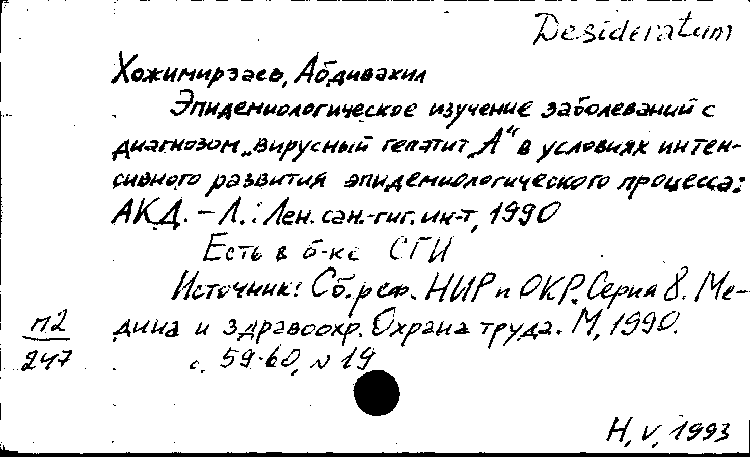 Desideratum
Хожимирзаев, Абдивахил
Эпидемиологическое изучение заболеваний с
диагнозом „вирусный гепатит „А“ в условиях интен-
сивного развития эпидемиологического процесса:
АКД. – Л.: Лен. сан.-гиг. ин-т, 1990
Есть в б-ке СГИ
Источник: Сб. реф. НИР и ОКР. Серия 8. Ме-
дина и здравоохр. Охрана труда. М, 1990.
с. 59-60, N 19
п2
247
H, V, 1993